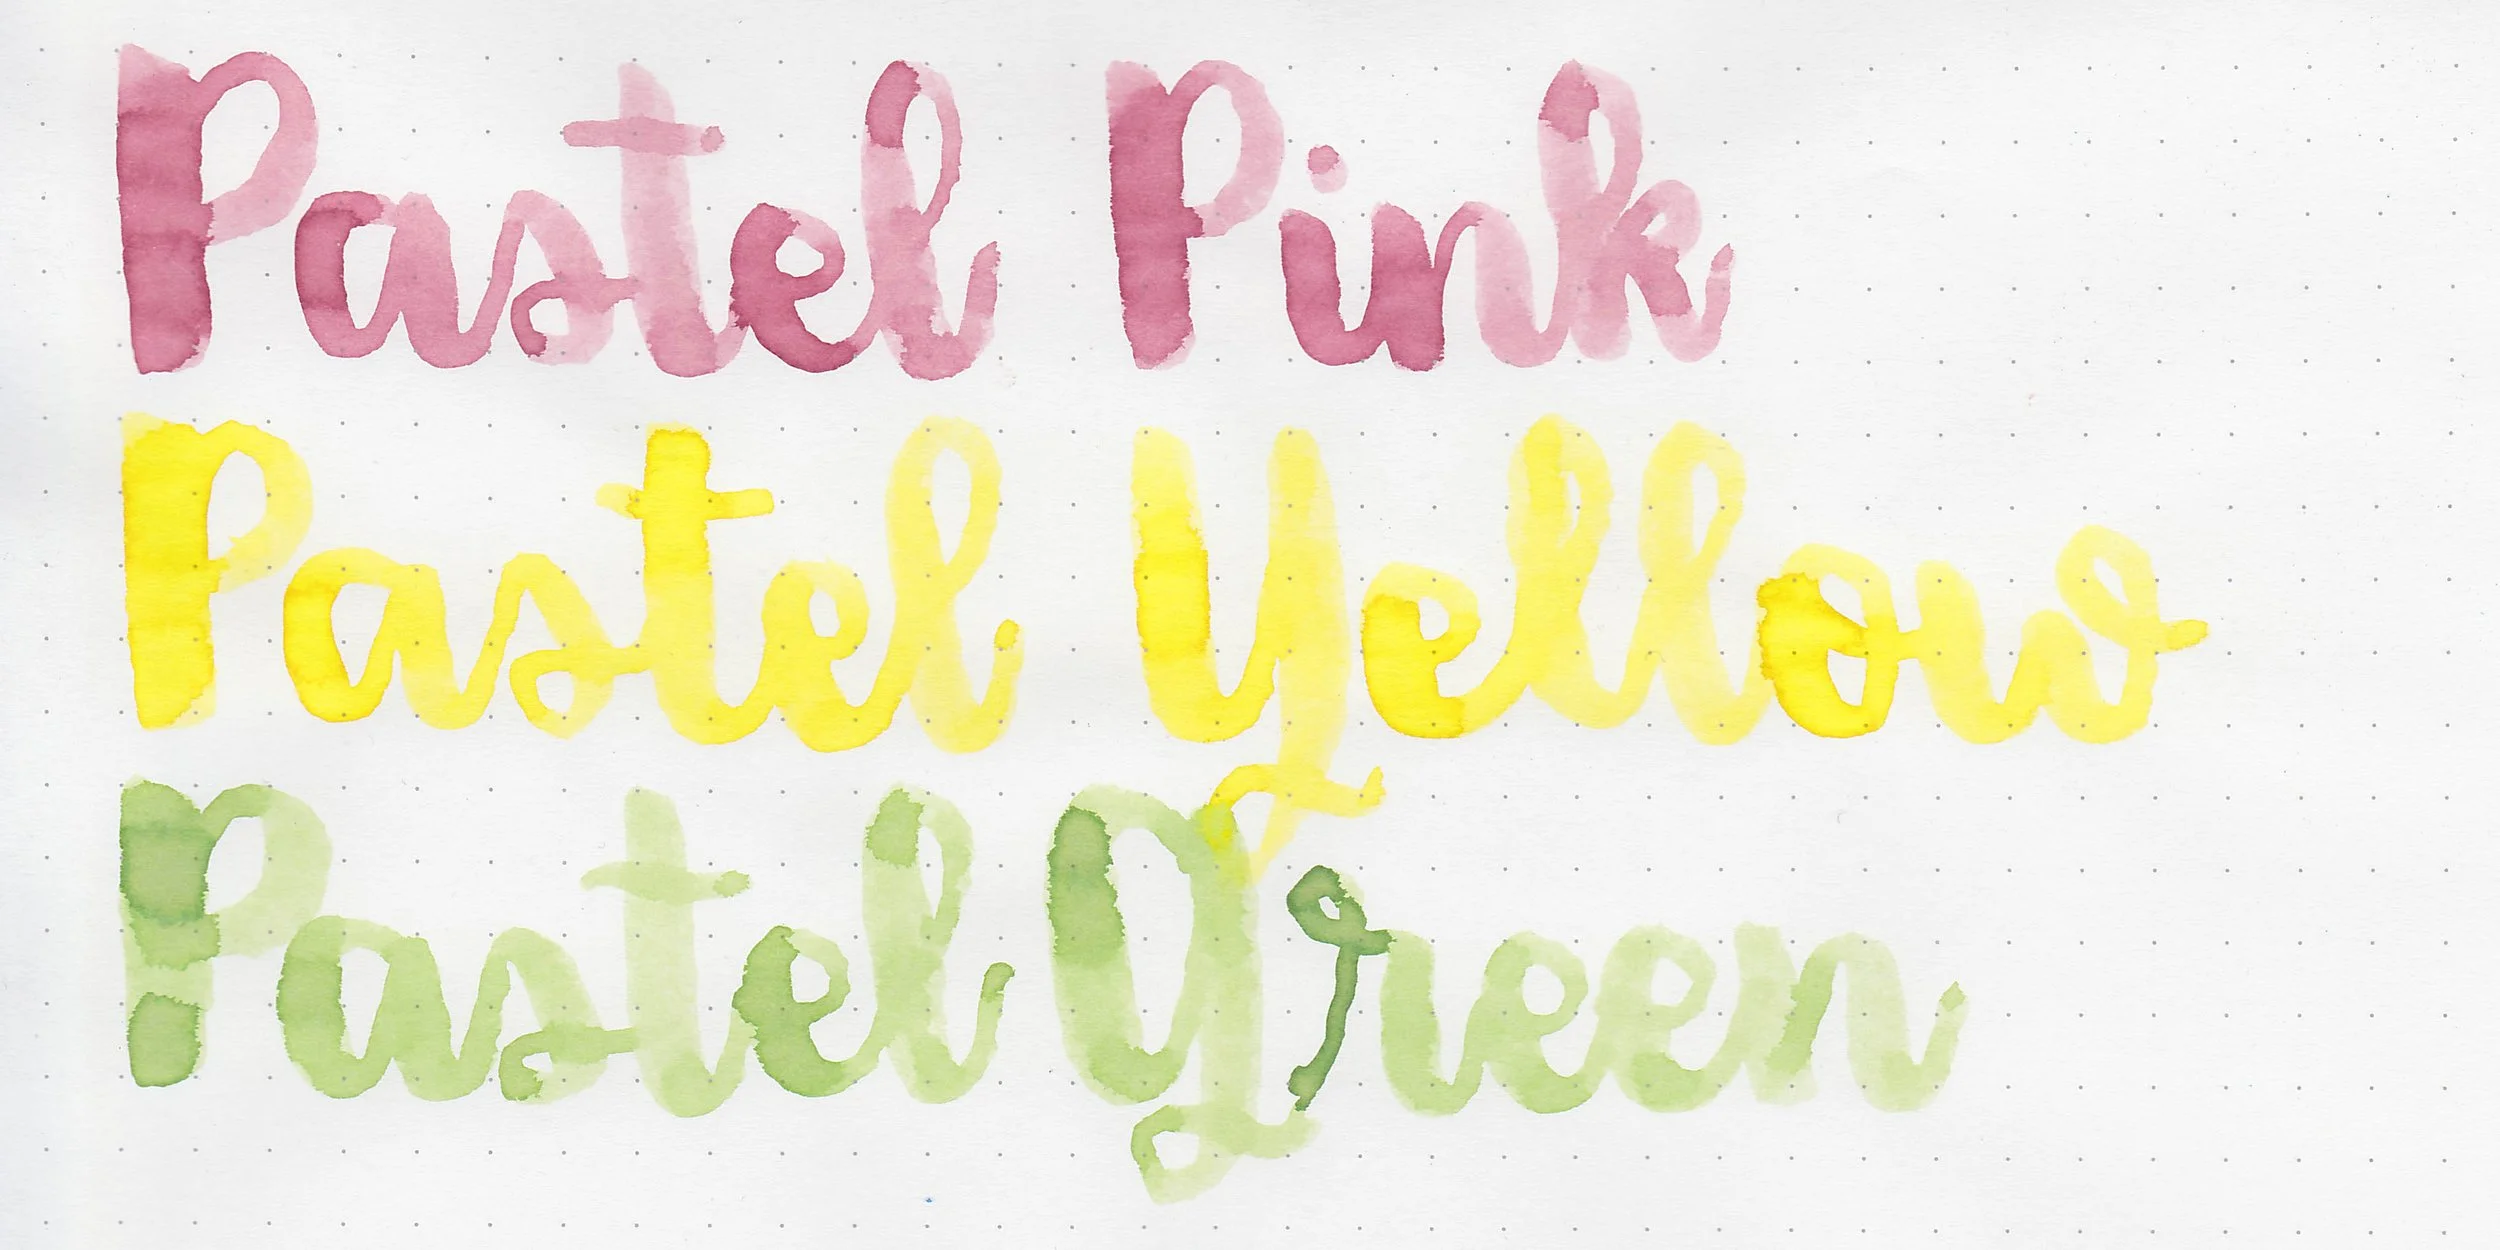 Pastel Pink
Pastel Yellow
Pastel Green